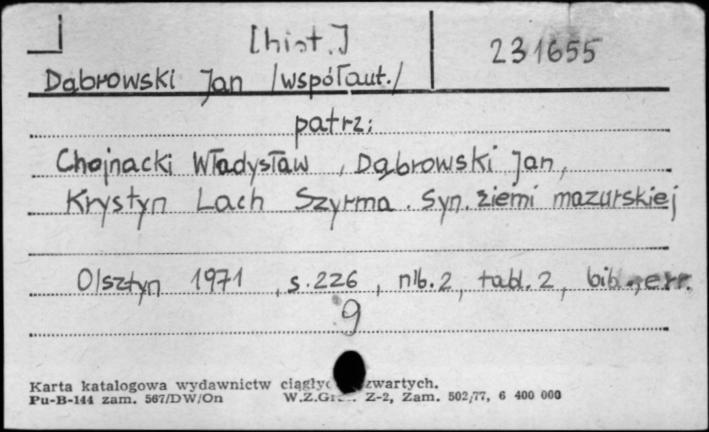 [hist.] 231655
Dąbrowski Jan /współaut./
patrz:
Chojnacki Władysław, Dąbrowski Jan,
Krystyn Lach Szyrma. Syn ziemi mazurskiej
Olsztyn 1971, s. 226, nlb. 2, tabl. 2, bibl., err.
9
Karta katalogowa wydawnictw zwartych.
Pu-B-144 zam. 567/DW/On W.Z.Gr. Z-2, Zam. 502/77, 6 400 000